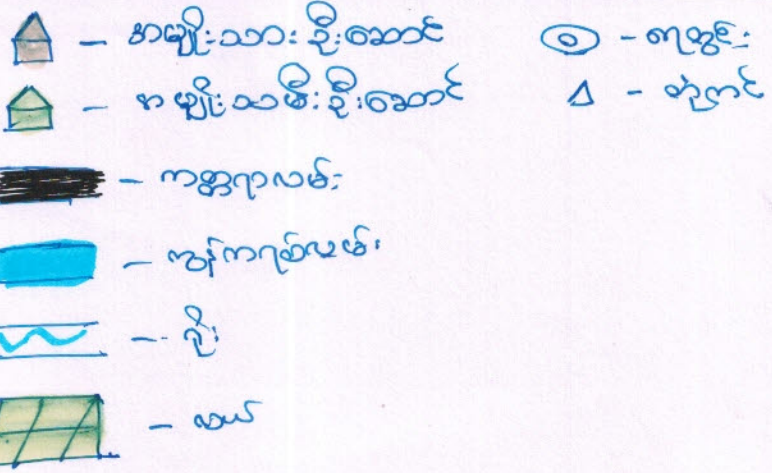 – အမျိုးသားဦးဆောင်
– အမျိုးသမီးဦးဆောင်
– ကတ္တရာလမ်း
– ကွန်ကရစ်လမ်း
– ရိုး
– လယ်
– ရေတွင်း
– တုံကင်